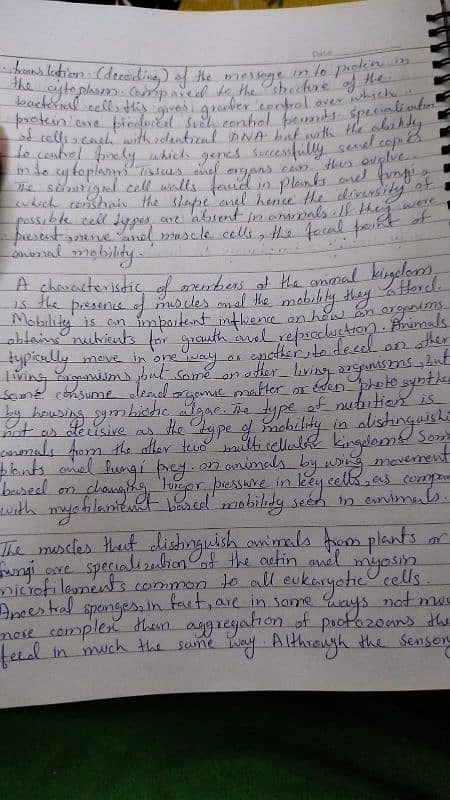 Date
translation (decoding) of the message into protein in
the cytoplasm. Compared to the structure of the
bacterial cell, this gives greater control over which
protein are produced. Such control permits specialization
of cells, each with identical DNA but with the ability
to control finely which genes successfully send copies
into cytoplasm, tissues and organs can thus evolve.
The semirigid cell walls found in plants and fungi,
which constrain the shape and hence the diversity of
possible cell types are absent in animals. If they were
present, nerve and muscle cells, the focal point of
animal mobility.
A characteristic of members of the animal kingdom
is the presence of muscles and the mobility they afford.
Mobility is an important influence on how an organisms
obtains nutrients for growth and reproduction. Animals
typically move in one way or another, to feed on other
living organisms, but some on other living organisms, but
some consume dead organic matter or even photosynthe
by housing symbiotic algae. The type of nutrition is
not as decisive as the type of mobility in distinguishi
animals from the other two multicellular kingdoms. Som
plants and fungi prey on animals by using movement
based on changing turgor pressure in key cells, as compar
with myofilament based mobility seen in animals.
The muscles that distinguish animals from plants or
fungi are specialization of the actin and myosin
microfilaments common to all eukaryotic cells.
Ancestral sponges, in fact, are in some ways not muc
more complex than aggregation of protozoans tha
feed in much the same way. Althrough the sensory